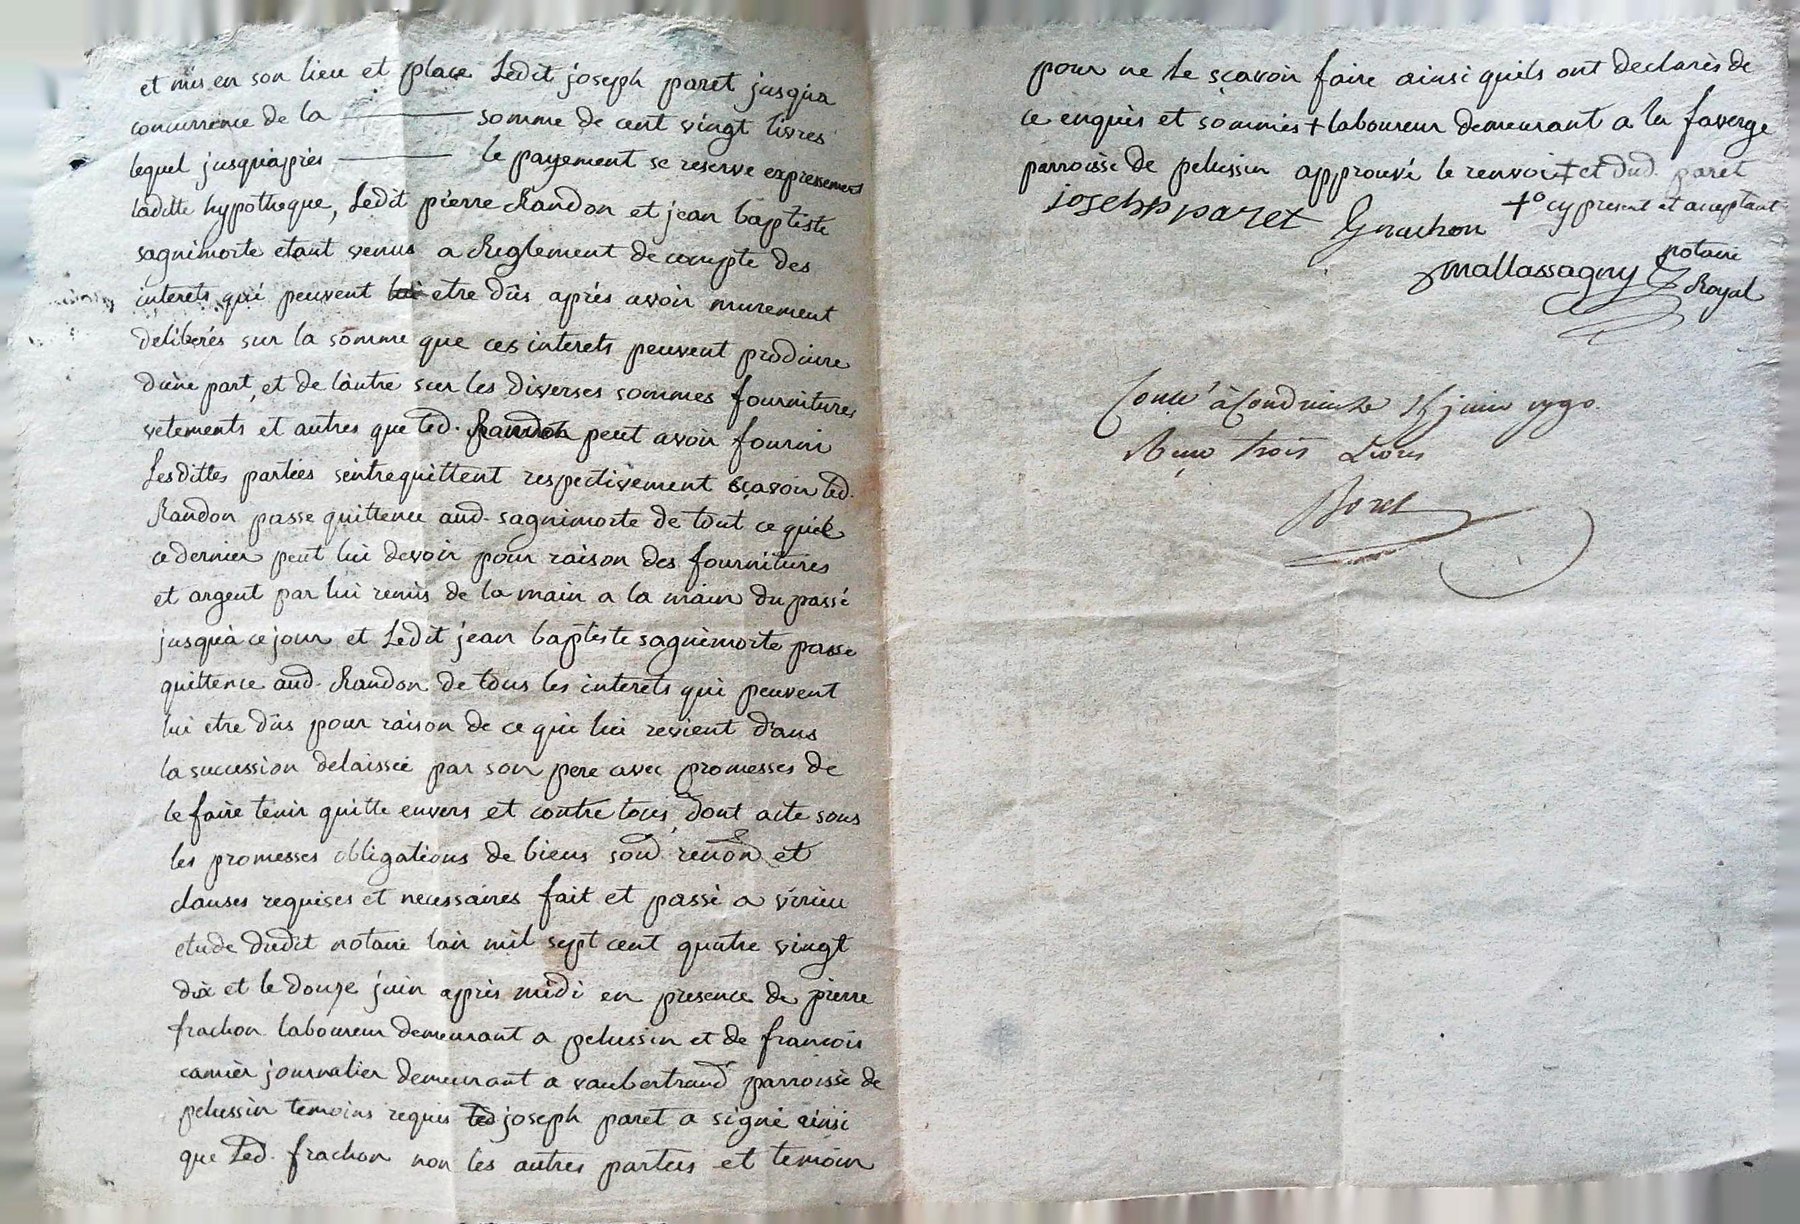 et mis en son lieu et place Ledit joseph paret jusqua
concurrence de la ——— somme de cent vingt livres
lequel jusquiapres ——— le payement se reserve expressement
laditte hypotheque, Ledit pierre Randon et jean baptiste
sagnimorte etant venus a Reglement de compte des
interets qui peuvent etre dûs aprés avoir murement
deliberés sur la somme que ces interets peuvent produire
dune part, et de lautre sur les diverses sommes fournitures
vetements et autres que led. Randon peut avoir fourni
Lesdittes parties sentrequittent respectivement sçavoir led.
Randon passe quittence aud. sagnimorte de tout ce que
ce dernier peut lui devoir pour raison des fournitures
et argent par lui remis de la main a la main du passé
jusqua ce jour et Ledit jean baptiste sagnimorte passe
quittence aud. Randon de tous les interets qui peuvent
lui etre dûs pour raison de ce qui lui revient dans
la succession delaissée par son pere avec promesses de
le faire tenir quitte envers et contre tous, dont acte sous
les promesses obligations de biens soud renon et
clauses requises et necessaires fait et passé a virieu
etude dudit notaire lan mil sept cent quatre vingt
dix et le douze juin aprés midi en presence de pierre
frachon laboureur demeurant a pelussin et de francois
camier journalier demeurant a vaubertrand parroisse de
pelussin temoins requis joseph paret a signé ainsi
que Led. frachon non les autres parties et temoin
pour ne le sçavoir faire ainsi quils ont declarés de
ce enquis et sommés + laboureur demeurant a la faverge
parroisse de pelussin approuvé le renvoi + et dud. paret
+° cy present et acceptant
joseph paret frachon
mallassagny notaire
Royal
Conle à Condrieu le 15 juin 1790
Reçu trois Livres
Borel